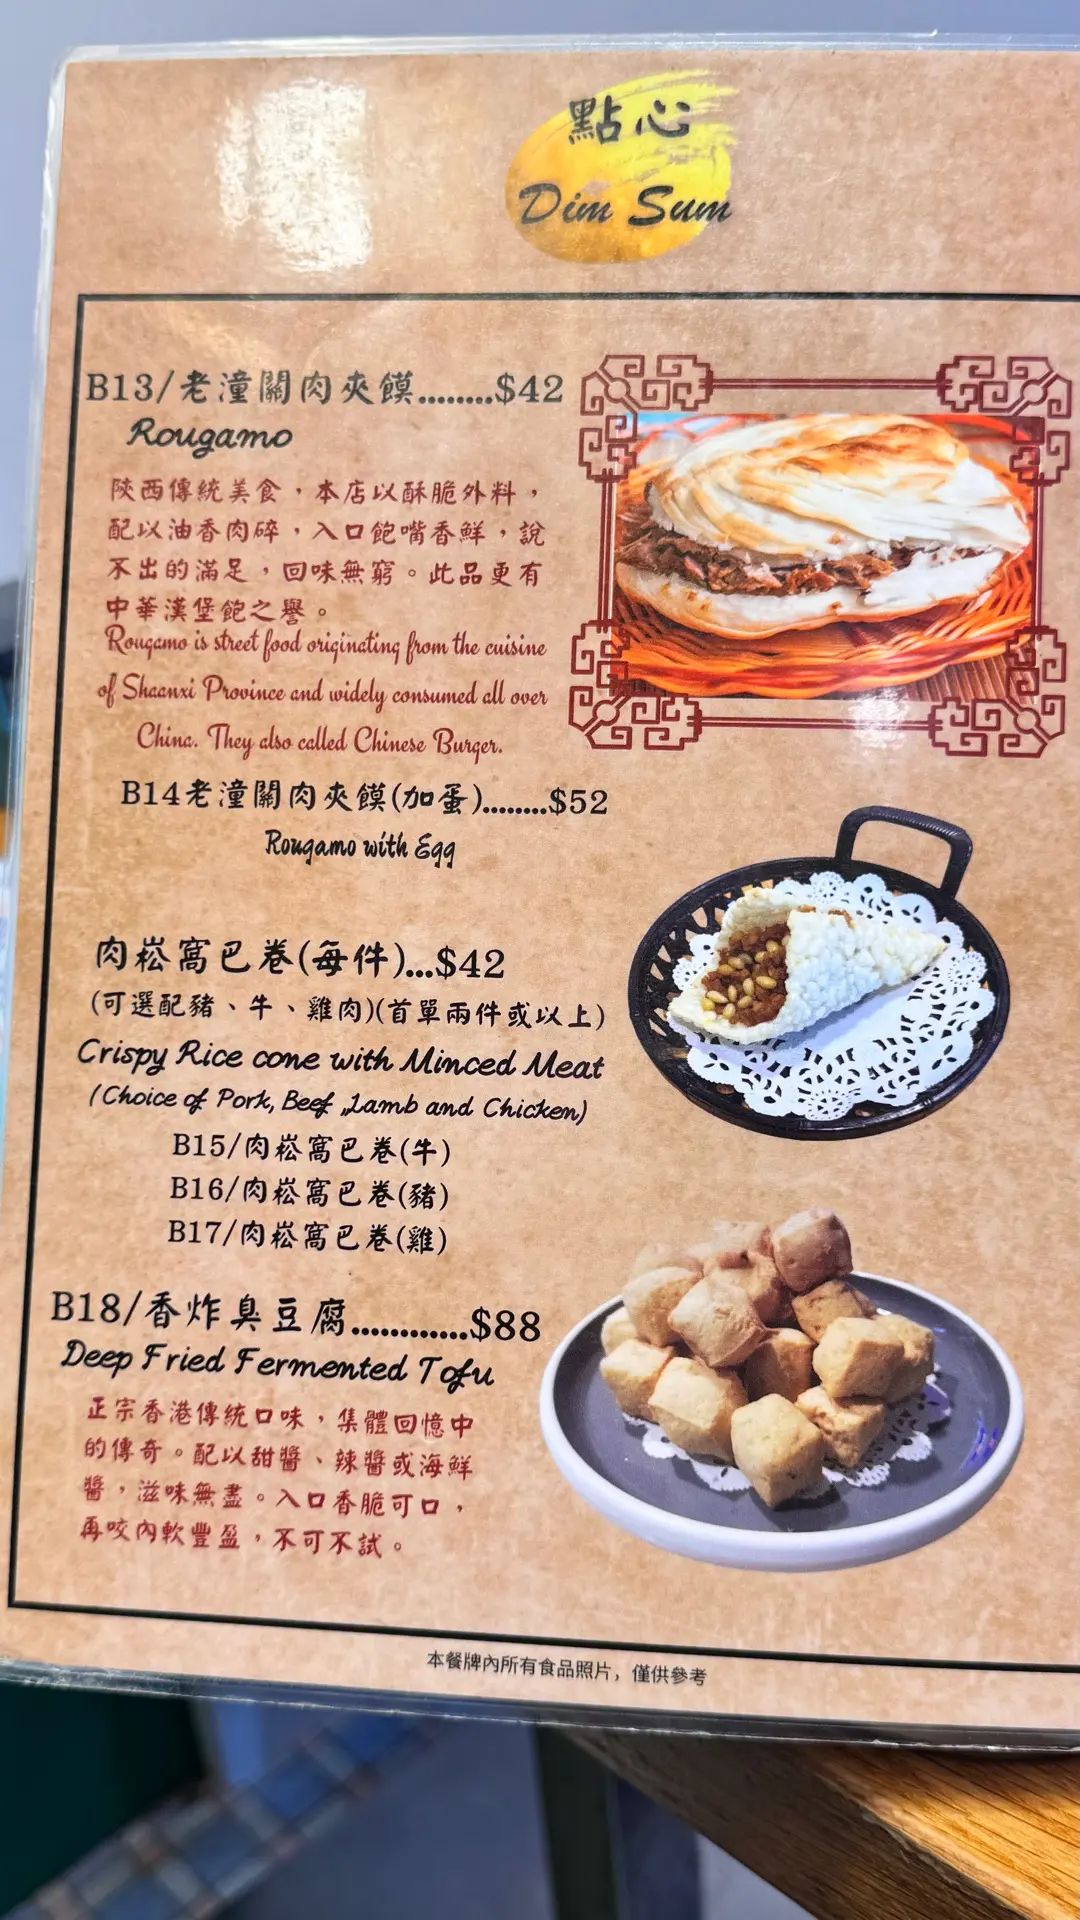 點心
Dim Sum
B13/老潼關肉夾饃........$42
Rougamo
陝西傳統美食，本店以酥脆外料，
配以油香肉碎，入口飽嘴香鮮，說
不出的滿足，回味無窮。此品更有
中華漢堡飽之譽。
Rougamo is street food originating from the cuisine
of Shaanxi Province and widely consumed all over
China. They also called Chinese Burger.
B14老潼關肉夾饃(加蛋)........$52
Rougamo with Egg
肉崧窩巴卷(每件)...$42
(可選配豬、牛、雞肉)(首單兩件或以上)
Crispy Rice cone with Minced Meat
(Choice of Pork, Beef ,Lamb and Chicken)
B15/肉崧窩巴卷(牛)
B16/肉崧窩巴卷(豬)
B17/肉崧窩巴卷(雞)
B18/香炸臭豆腐............$88
Deep Fried Fermented Tofu
正宗香港傳統口味，集體回憶中
的傳奇。配以甜醬、辣醬或海鮮
醬，滋味無盡。入口香脆可口，
再咬內軟豐盈，不可不試。
本餐牌內所有食品照片，僅供參考